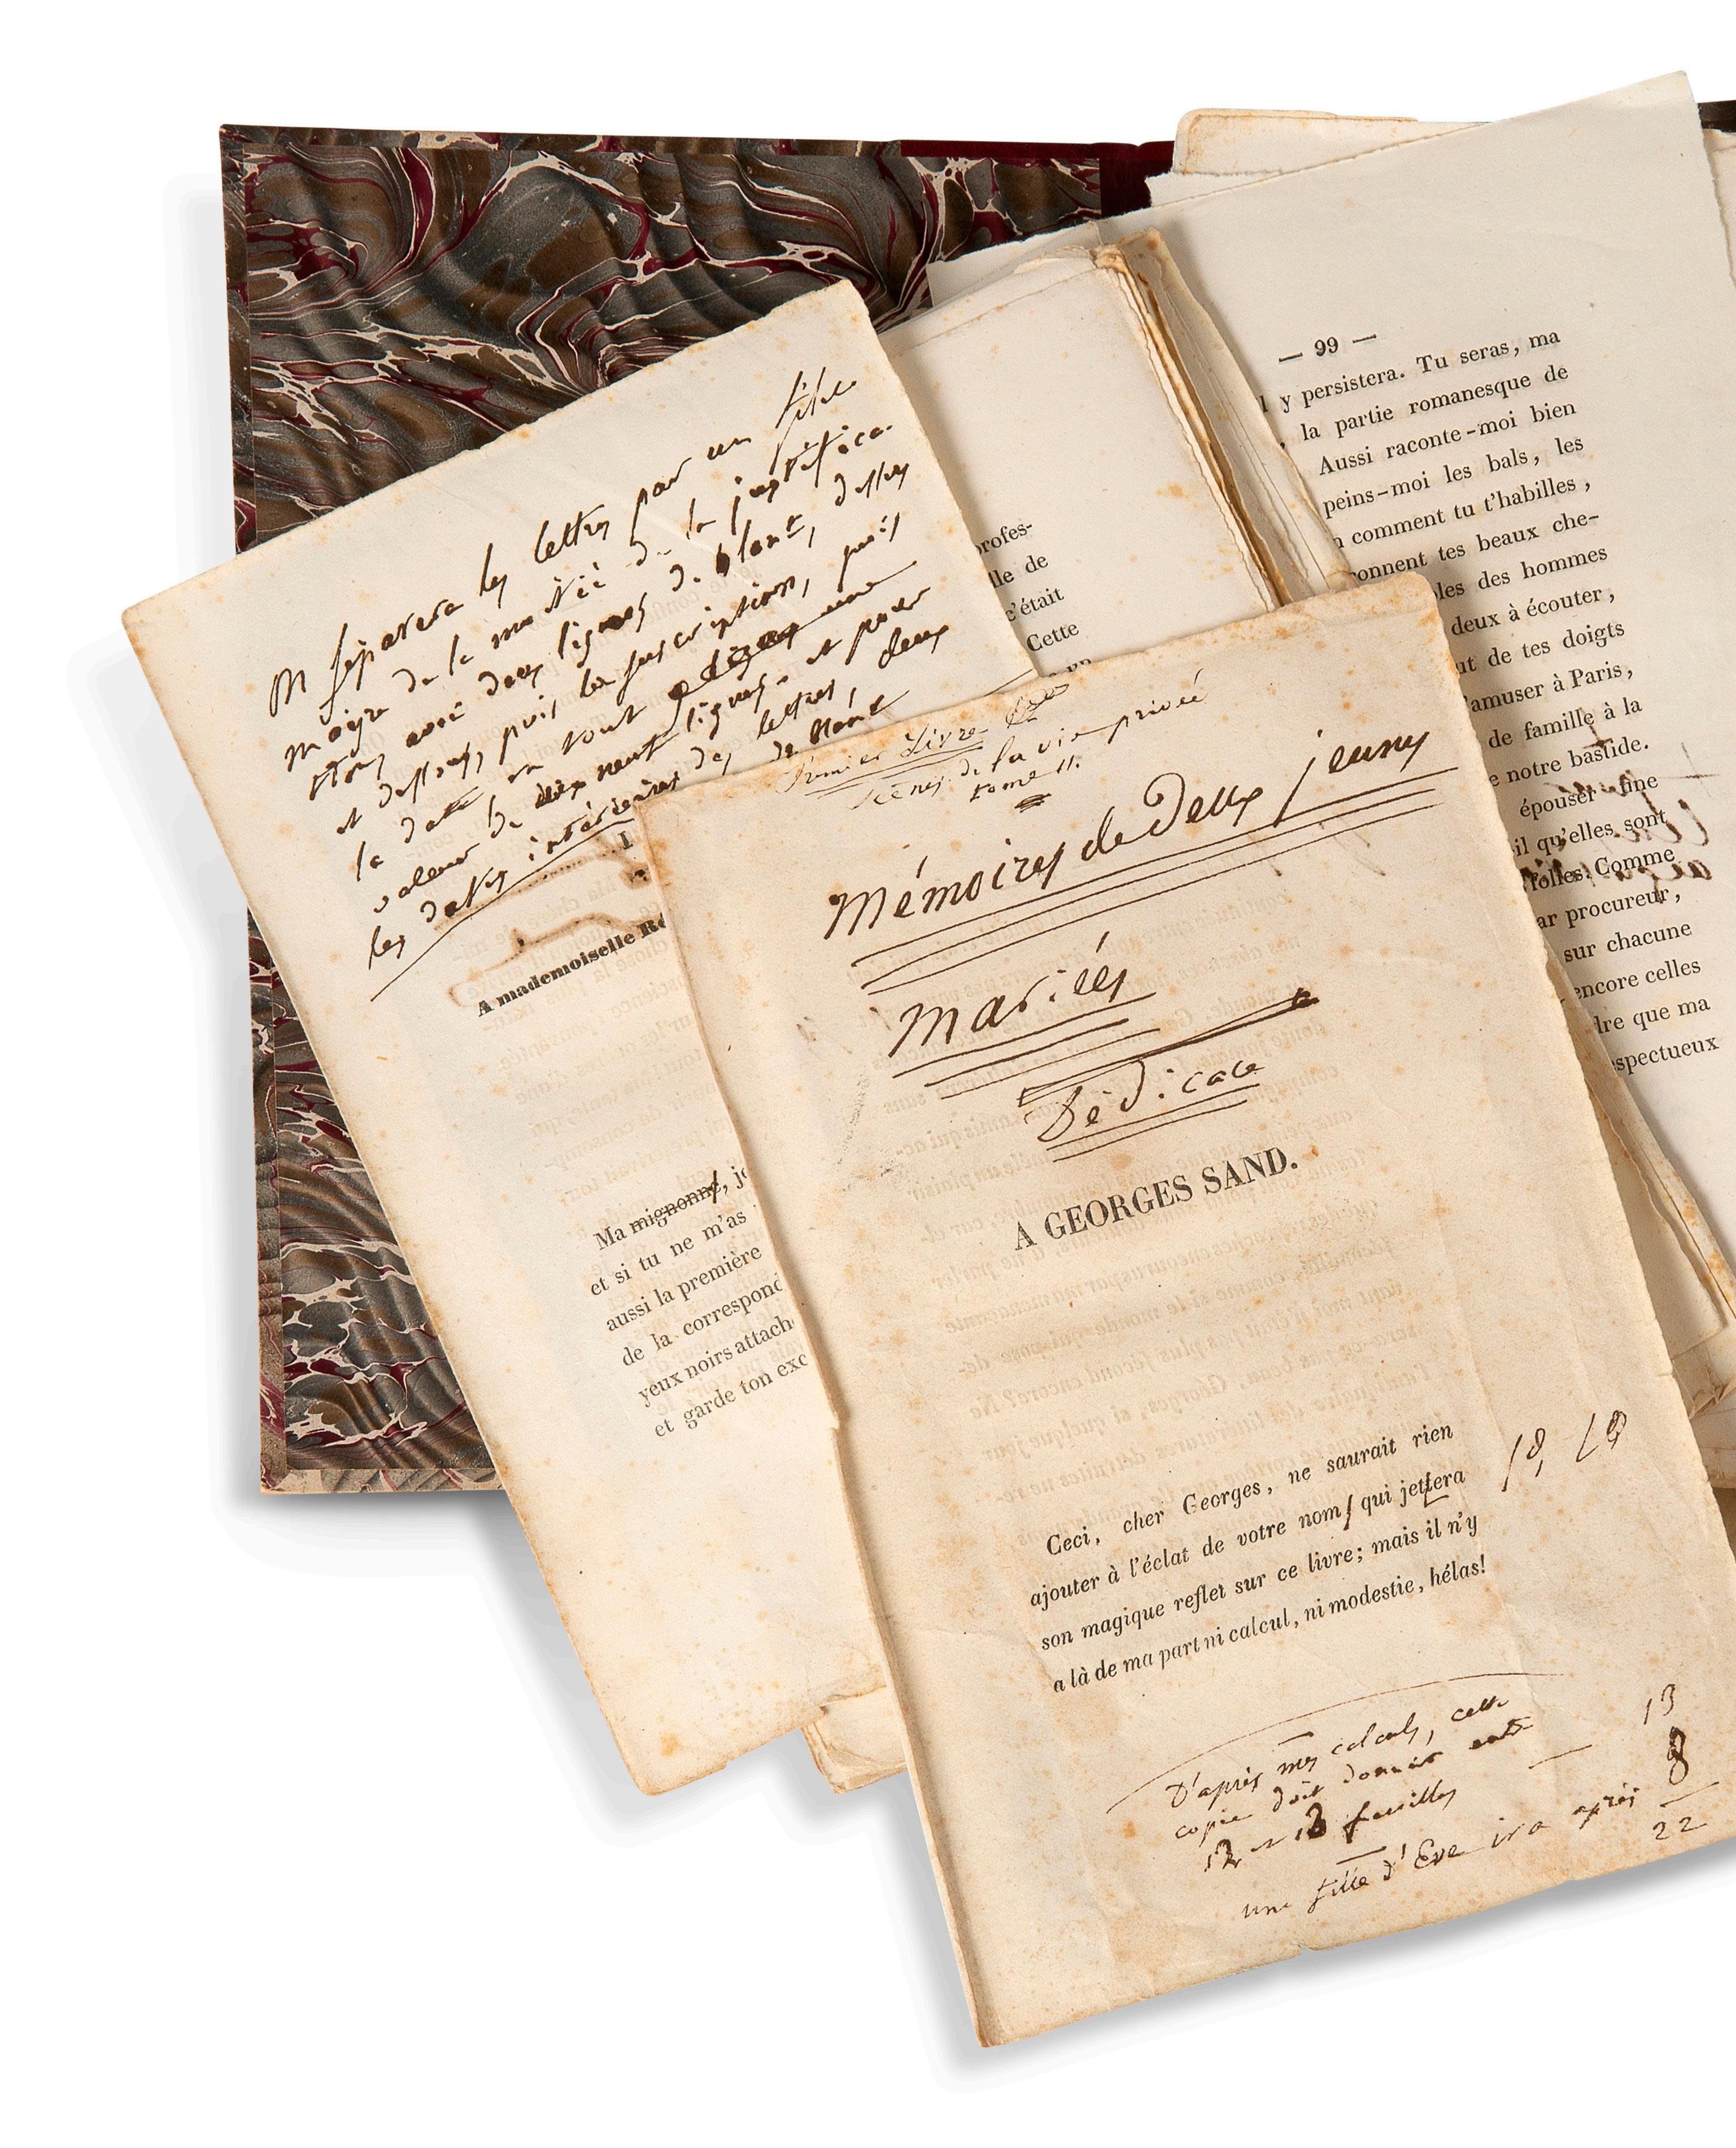 On séparera les lettres par un filet
maigre de la moitié de la justifica-
tion, avec deux lignes de blanc, dessus
et dessous, puis la suscription, puis
la date, en tout
valeur de neuf lignes. et pour
les dates intérieures des lettres, deux
de blanc
I
A mademoiselle Re
Ma mignonne, je
et si tu ne m'as
aussi la première
de la correspond
yeux noirs attach
et garde ton exc
profes-
lle de
c'était
Cette
un
— 99 —
l y persistera. Tu seras, ma
, la partie romanesque de
Aussi raconte-moi bien
peins-moi les bals, les
n comment tu t'habilles,
ronnent tes beaux che-
les des hommes
deux à écouter,
ut de tes doigts
'amuser à Paris,
de famille à la
e notre bastide.
épouser une
il qu'elles sont
folles. Comme
ar procureur,
sur chacune
encore celles
dre que ma
spectueux
Premier Livre
Scènes de la vie privée
tome II.
Mémoires de Deux jeunes
Mariées
Dédicace
A GEORGES SAND.
Ceci, cher Georges, ne saurait rien
ajouter à l'éclat de votre nom, qui jettera
son magique reflet sur ce livre; mais il n'y
a là de ma part ni calcul, ni modestie, hélas!
D'après mes calculs, cette
copie doit donner entre
12 et 13 feuilles — 13
une fille d'Eve ira après 8
22